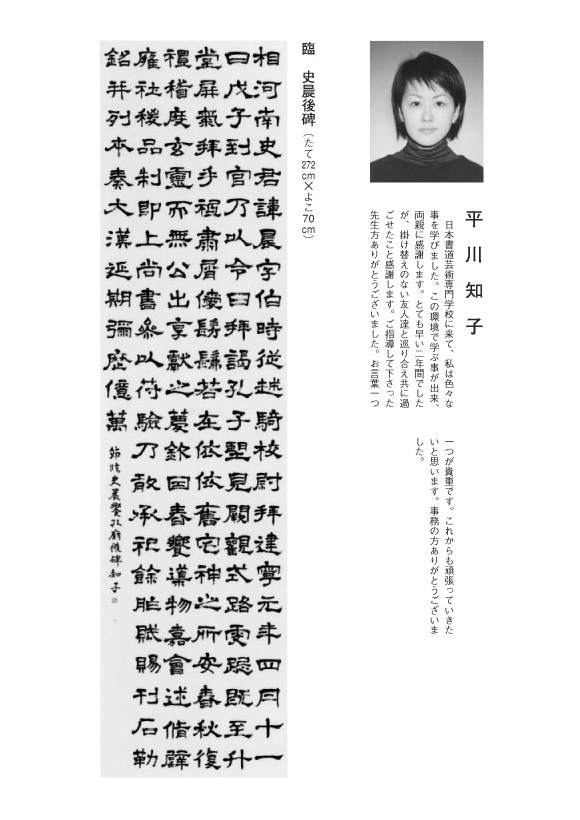 平川知子
日本書道芸術専門学校に来て、私は色々な
事を学びました。この環境で学ぶ事が出来、
両親に感謝します。とても早い二年間でした
が、掛け替えのない友人達と巡り合え共に過
ごせたこと感謝します。ご指導して下さった
先生方ありがとうございました。お言葉一つ
一つが貴重です。これからも頑張っていきた
いと思います。事務の方ありがとうございま
した。
臨　史晨後碑（たて272cm×よこ70cm）
相河南史君諱晨字伯時從越騎校尉拜建寧元年四月十一
日戊子到官乃以令日拜謁孔子望見闕觀式路虔跽既至升
堂屏氣拜手祗肅屑僾髣髴若在依依舊宅神之所安春秋復
禮稽度玄靈而無公出享獻之薦欽因春饗導物嘉會述脩辟
雍社稷品制即上尚書參以符驗乃敢承祀餘胙賦賜刊石勒
銘并列本奏大漢延期彌歷億萬
節臨史晨饗孔廟後碑 知子